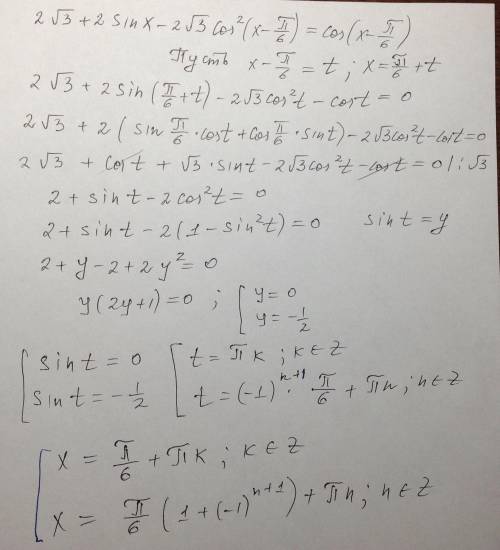 2√3 + 2 sin x − 2√3 cos²(x − π/6) = cos(x − π/6)
Пусть x − π/6 = t ; x = π/6 + t
2√3 + 2 sin(π/6 + t) − 2√3 cos²t − cos t = 0
2√3 + 2(sin π/6 · cos t + cos π/6 · sin t) − 2√3 cos²t − cos t = 0
2√3 + cos t + √3 · sin t − 2√3 cos²t − cos t = 0 / : √3
2 + sin t − 2 cos²t = 0
2 + sin t − 2(1 − sin²t) = 0 sin t = y
2 + y − 2 + 2y² = 0
y(2y + 1) = 0 ; [ y = 0
y = −1/2
[ sin t = 0 [ t = πk ; k ∈ Z
sin t = −1/2 t = (−1)ⁿ⁺¹ · π/6 + πn ; n ∈ Z
[ x = π/6 + πk ; k ∈ Z
x = π/6 (1 + (−1)ⁿ⁺¹) + πn ; n ∈ Z